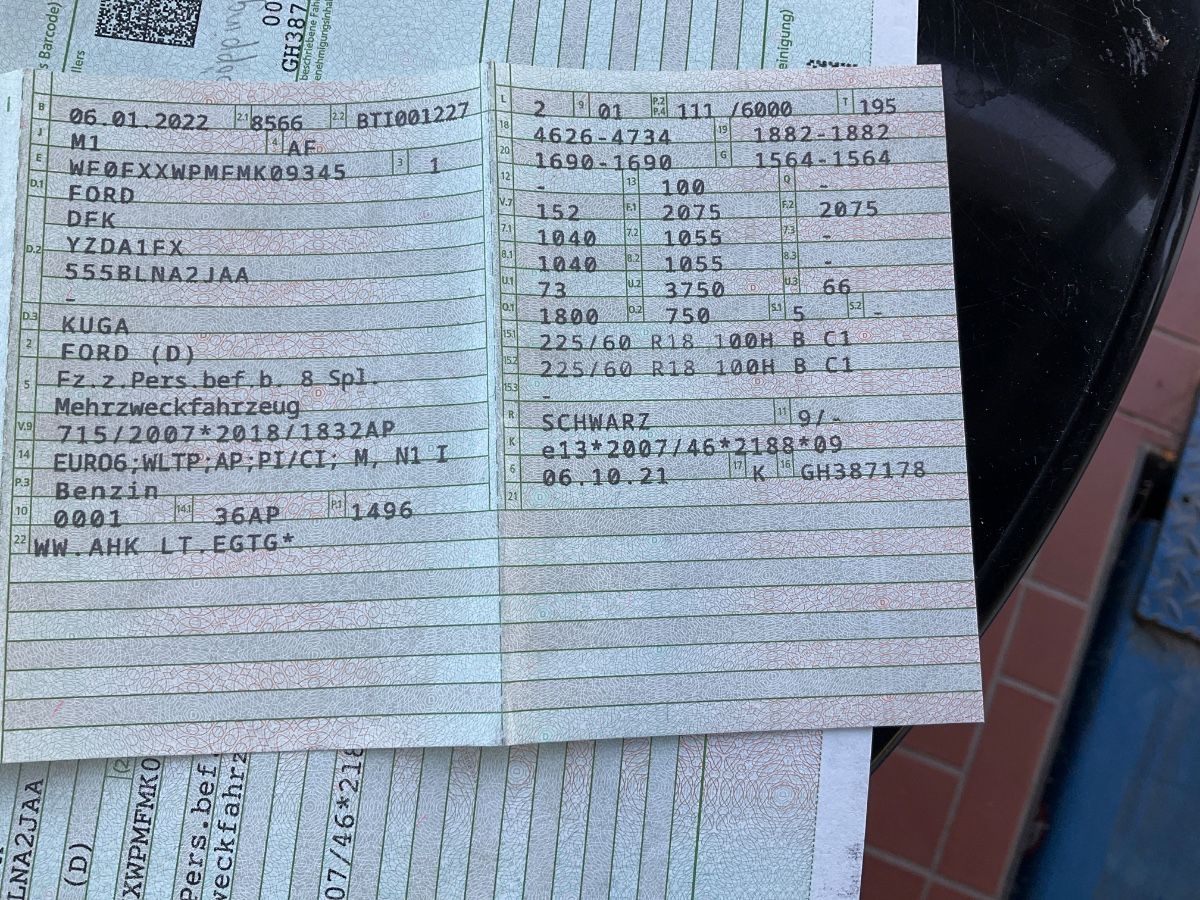 s Barcode)
llers
00
GH387
beschriebene Fah
enehmigungsinha
einigung)
B 06.01.2022 2.1 8566 2.2 BTI001227
J M1 4 AF
E WF0FXXWPMFMK09345 3 1
D.1 FORD
DFK
D.2 YZDA1FX
555BLNA2JAA
-
D.3 KUGA
2 FORD (D)
5 Fz.z.Pers.bef.b. 8 Spl.
Mehrzweckfahrzeug
V.9 715/2007*2018/1832AP
14 EURO6;WLTP;AP;PI/CI; M, N1 I
P.3 Benzin
10 0001 14.1 36AP P.1 1496
22 WW.AHK LT.EGTG*
L 2 9 01 P.2 P.4 111 /6000 T 195
18 4626-4734 19 1882-1882
20 1690-1690 G 1564-1564
12 - 13 100 Q -
V.7 152 F.1 2075 F.2 2075
7.1 1040 7.2 1055 7.3 -
8.1 1040 8.2 1055 8.3 -
U.1 73 U.2 3750 U.3 66
O.1 1800 O.2 750 S.1 5 S.2 -
15.1 225/60 R18 100H B C1
15.2 225/60 R18 100H B C1
15.3 -
R SCHWARZ 11 9/-
K e13*2007/46*2188*09
6 06.10.21 17 K 16 GH387178
21
LNA2JAA
(D)
(2
XWPMFMK0
Pers.bef.
weckfahrz
07/46*218